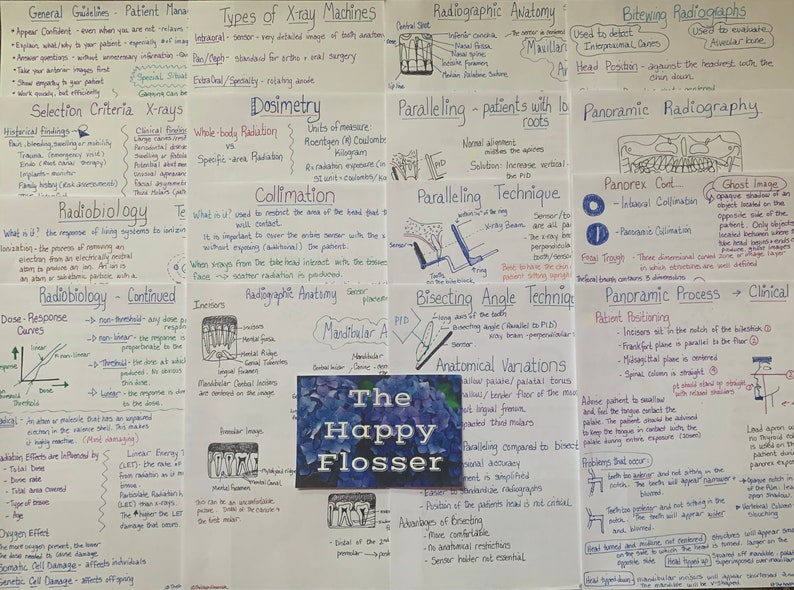 General Guidelines - Patient Mana
* Appear Confident - even when you are not relaxes
* Explain what/why to your patient - especially
* Answer questions - without unnecessary information
* Take your anterior images first
* Show empathy to your patient
* Work quickly, but efficiently
Special Situat
Gagging can be
Types of X-ray Machines
Intraoral - sensor - very detailed image of tooth anatom
Pan/Ceph - standard for ortho + oral surgery
ExtraOral/Specialty - rotating anode
Radiographic Anatomy
Central Slot
Inferior concha
Nasal fossa
Nasal spine
Incisive foramen
Median Palatine Suture
lip line
The sensor is centered
Maxillar
An
Bitewing Radiographs
Used to detect
Interproximal Caries
Used to evaluate
Alveolar bone
Head Position - against the headrest with the
chin down.
Selection Criteria X-rays
Historical findings
Pain, bleeding, swelling or mobility
Trauma (emergency visit)
Endo (root canal therapy)
Implants - monitor
Family history (risk assessment)
Clinical finding
Large caries/rest
Periodontal diseas
Swelling or fistula
Potential abut
Unusual appearan
Facial asymmetri
Third Molars
Dosimetry
Whole-body Radiation
vs.
Specific-area Radiation
Units of measure:
Roentgen (R) Coulombs
Kilogram
R = radiation exposure (in
SI unit = coulombs/k
Paralleling - patients with lo
roots
PID
Normal alignment
misses the apices
Solution: Increase vertical
the PID
Panoramic Radiography
Radiobiology
Te
What is it? the response of living systems to ionizin
Ionization - the process of removing an
electron from an electrically neutral
atom to produce an ion. An ion is
an atom or subatomic particle with a
Collimation
What is it? used to restrict the area of the head that t
will contact.
It is important to cover the entire sensor with the x
without exposing (additional) the patient.
When x-rays from the tube head interact with the tissues
Face → scatter radiation is produced.
Paralleling Technique
within ¼" of the ring
X-ray Beam
Sensor
Teeth
on the bite block
ring
Sensor/to
are all pa
- The x-ray be
perpendicula
tooth/senso
Best to have the chin
patient sitting upright
Panorex Cont...
- Intraoral Collimation
- Panoramic Collimation
Ghost Image
opaque shadow of an
object located on the
opposite side of the
patient. Only objects
located between where
tube head begins + ends
produce ghost images
Focal Trough - Three dimensional curved zone or image layer
in which structures are well defined
The focal trough contains 3 dimensions
Radiobiology - Continued
Dose-Response
Curves
response
linear
non-linear
Threshold
dose
non-threshold - any dose
respon
non-linear - the response is
proportionate to the
Threshold - the dose at
produced. No obvious
this dose.
Linear - the response is
to the dose.
Radical - An atom or molecule that has an unpaired
electron in the valence shell. This makes
it highly reactive. (Mind damaging)
Radiation Effects are Influenced by
- Total Dose
- Dose rate
- Total area covered
- Type of tissue
- Age
Linear Energy T
(LET) - the rate of
from radiation as it
tissue.
Particulate Radiation
(LET) than x-rays.
The ↑ higher the LET
damage that occurs.
Oxygen Effect
The more oxygen present, the lower
the dose needed to cause damage.
Somatic Cell Damage - affects individuals
Genetic Cell Damage - affects offspring
Radiographic Anatomy
Sensor
placemen
Incisors
Incisors
Mental fossa
Mental Ridge
Genial Tubercles
Lingual Foramen
Mandibular Central Incisors
are centered on the image.
Mandibular A
Mandibular
Central Incisor
Canine
Premolar Image
Mylohyoid ridge
Mental Canal
Mental Foramen
This can be an uncomfortable
picture. Distal of the canine +
the first molar.
Distal of the 2nd
premolar
Bisecting Angle Techniq
PID
long axis of the tooth
Bisecting angle (Parallel to PID)
Xray beam - perpendicular
sensor
Anatomical Variations
shallow palate/palatal torus
shallow/tender floor of the mo
short lingual frenum
impacted third molars
Paralleling compared to bisect
Dimensional accuracy
alignment is simplified
- Easier to standardize radiographs
- Position of the patients head is not critical
Advantages of Bisecting
- more comfortable
- no anatomical restrictions
- Sensor holder not essential
The
Happy
Flosser
Panoramic Process → Clinical
Patient Positioning
- Incisors sit in the notch of the bitestick ①
- Frankfort plane is parallel to the floor ②
- Midsagittal plane is centered ③
- Spinal column is straight ④
pt should stand up straight
with relaxed shoulders
Advise patient to swallow
and feel the tongue contact the
palate. The patient should be advised
to keep the tongue in contact with the
palate during entire exposure
Lead apron w
no Thyroid co
is used on the
patient during
panorex expos
Problems that occur:
teeth too anterior and not sitting in the
notch. The teeth will appear narrower +
blurred.
teeth too posterior and not sitting in
the notch. The teeth will appear wider
and blurred.
Opaque notch in
of the film: lead
apron shadow.
Vertebral Column
slouching
Head turned and midline not centered
Structures will appear smal
on the side to which the head is turned, larger on the
opposite side.
Head tipped up
Squared off mandible, palate
superimposed over maxillary
Head tipped down
Mandibular incisors will appear shortened and
The mandible will be V-shaped.